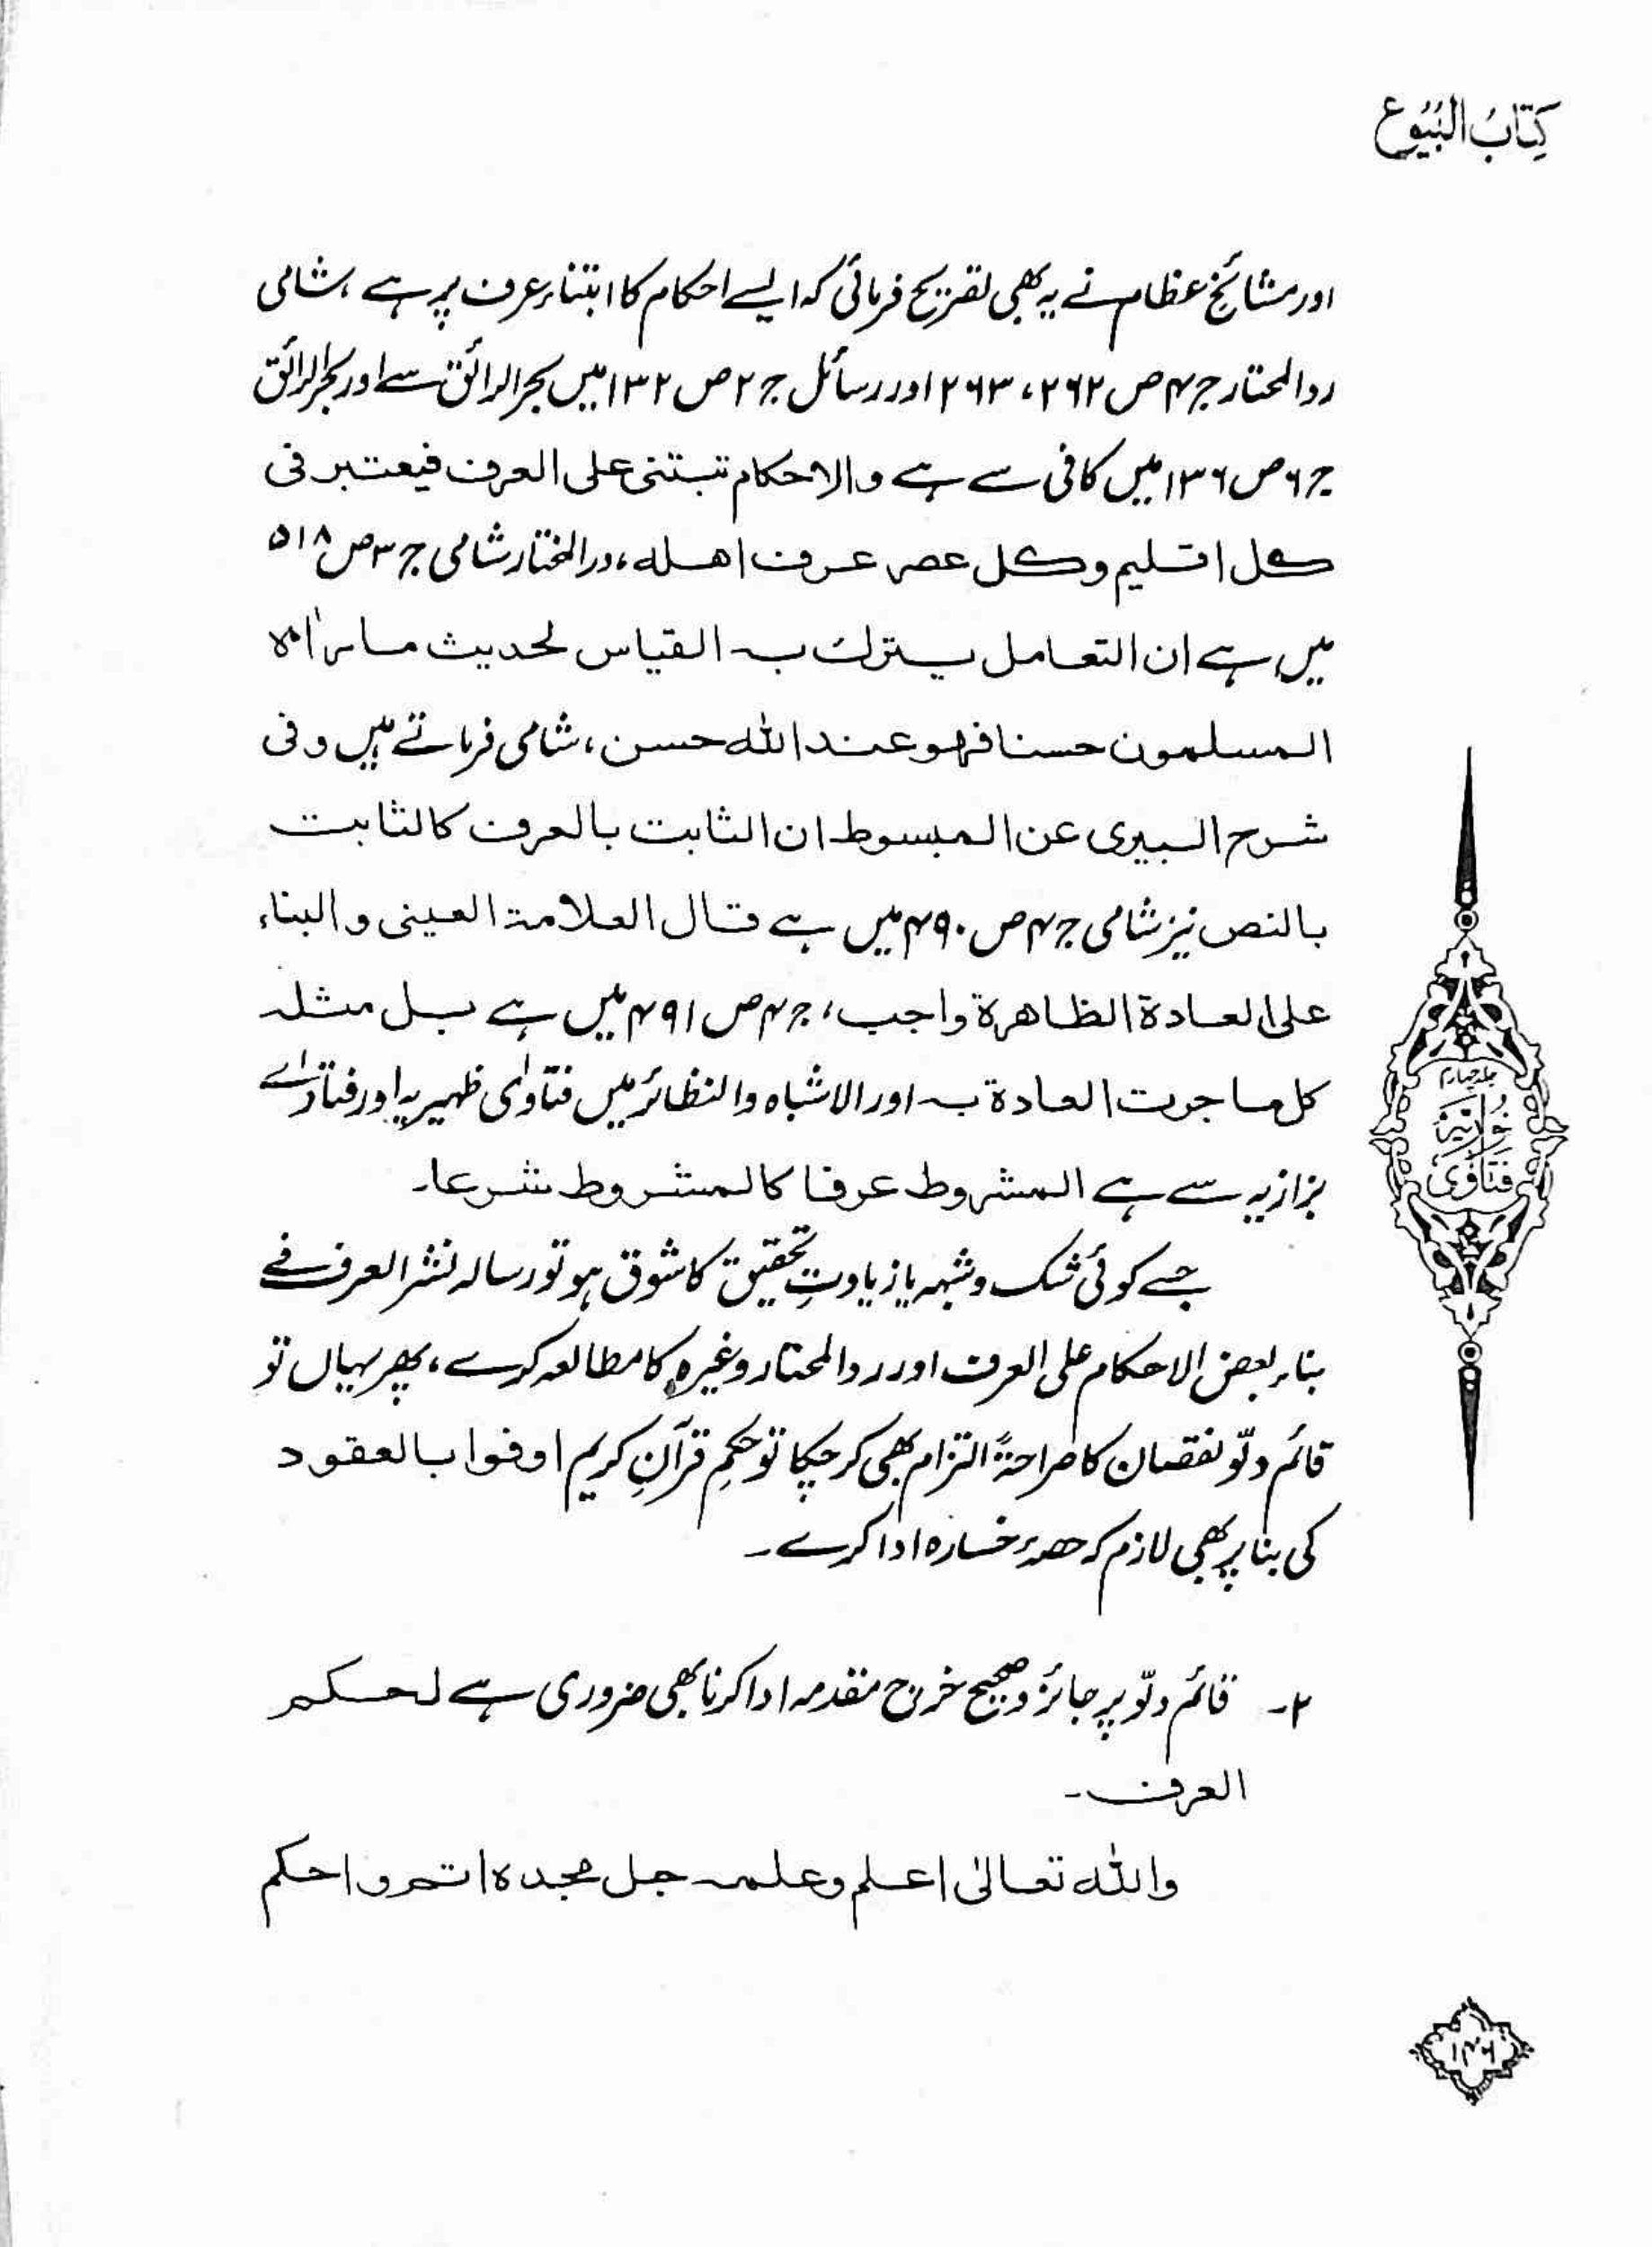 كِتَابُ البُيُوع
اور مشائخ عظام نے یہ بھی تصریح فرمائی کہ ایسے احکام کا ابتناء عرف پر ہے ، شامی
ردالمحتار ج ۴ ص ۲۶۲ ، ۲۶۳ اور رسائل ج ۲ ص ۱۳۲ میں بحرالرائق سے اور بحرالرائق
ج ۶ ص ۱۳۶ میں کافی سے ہے والاحکام تبتنی علی العرف فیعتبر فی
کل اقلیم وکل عصر عرف اھلہ ، درالمختار شامی ج ۳ ص ۵۱۸
میں ہے ان التعامل یترك بہ القیاس لحدیث ما رأہ
المسلمون حسنا فھو عند اللہ حسن ، شامی فرماتے ہیں و فی
شرح البیری عن المبسوط ان الثابت بالعرف کالثابت
بالنص نیز شامی ج ۴ ص ۴۹۰ میں ہے قال العلامۃ العینی و البناء
علی العادۃ الظاھرۃ واجب ، ج ۴ ص ۴۹۱ میں ہے بل مثلہ
کل ما جرت العادۃ بہ اور الاشباہ والنظائر میں فتاوٰی ظہیریہ اور فتاوٰے
بزازیہ سے ہے المشروط عرفا کالمشروط شرعا۔
جسے کوئی شک وشبہہ یا زیادتِ تحقیق کا شوق ہو تو رسالہ نشر العرف فے
بناء بعض الاحکام علی العرف اور ردالمحتار وغیرہ کا مطالعہ کرے ، پھر یہاں تو
قائم دلّو نقصان کا صراحۃً التزام بھی کر چکا تو حکمِ قرآنِ کریم اوفوا بالعقود
کی بنا پر بھی لازم کہ حصۂ خسارہ ادا کرے ۔
۲۔ قائم دلّو پر جائز و صحیح خرچ مقدمہ ادا کرنا بھی ضروری ہے لحکم
العرف ۔
واللہ تعالیٰ اعلم وعلمہ جل مجدہ اتم واحکم
جلد چہارم
نُورِیَّہ
فتَاوٰی
۱۴۶